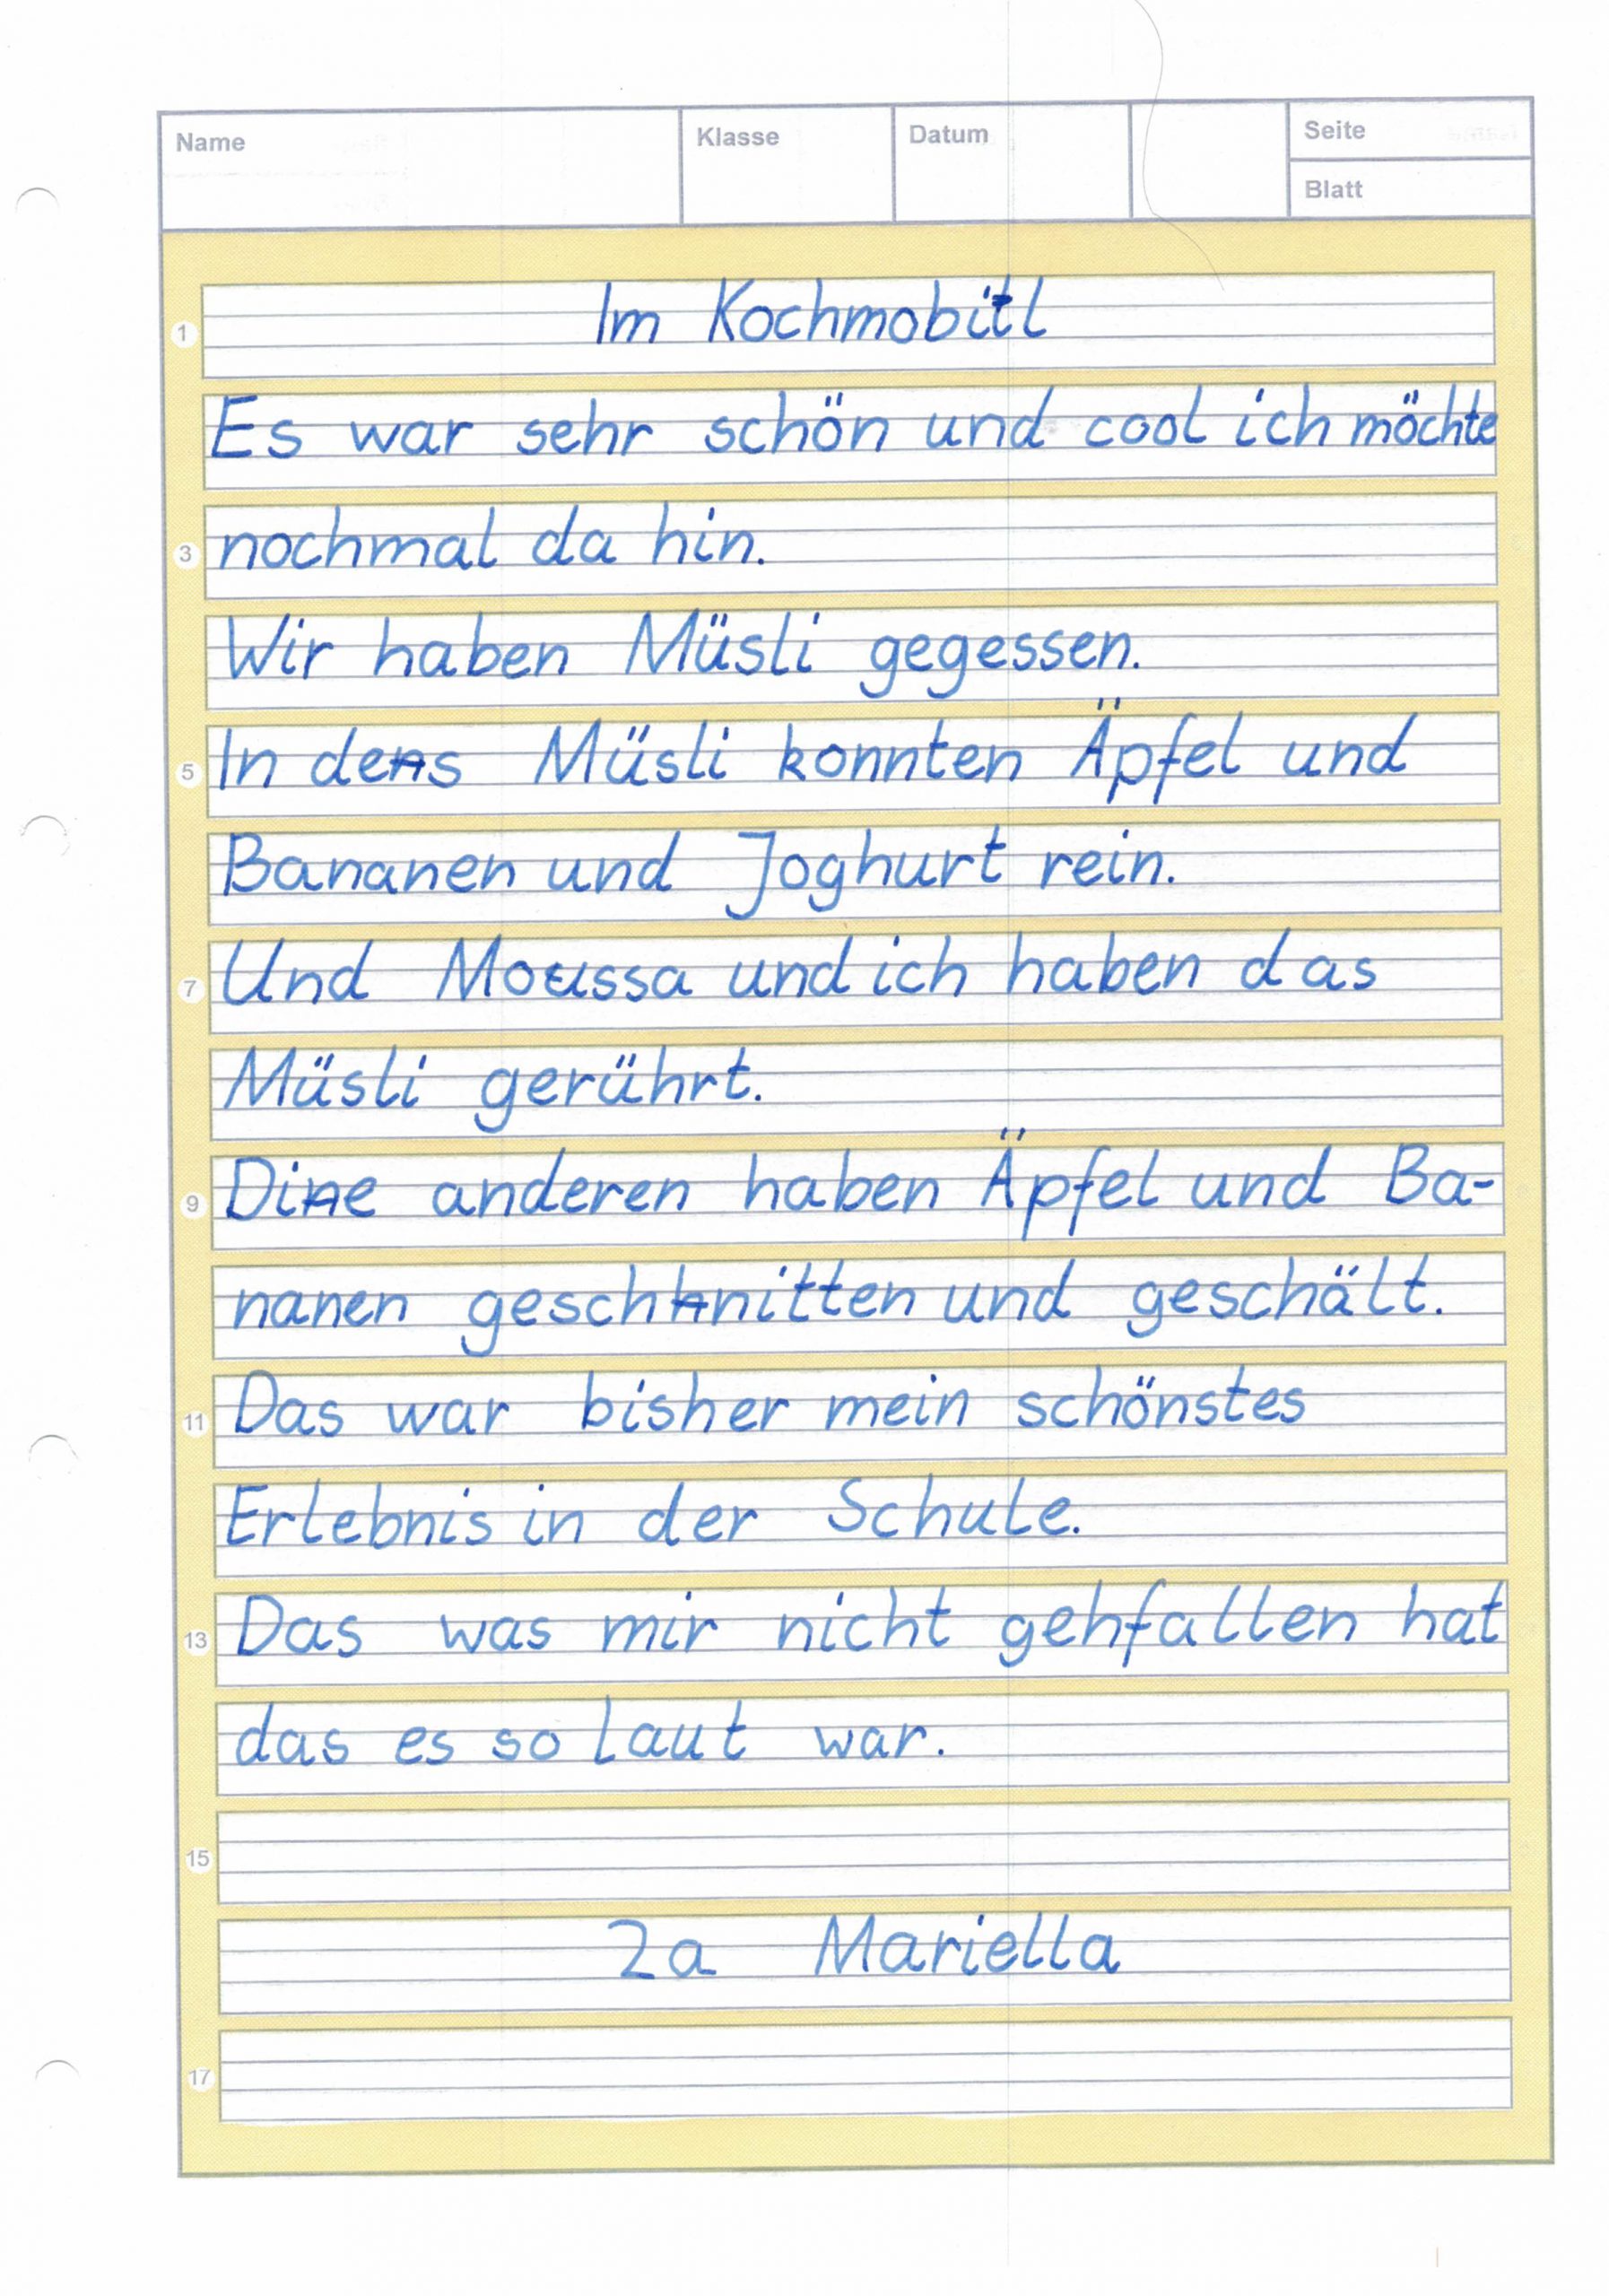 Name
Klasse
Datum
Seite
Blatt
1
Im Kochmobil
Es war sehr schön und cool ich möchte
3
nochmal da hin.
Wir haben Müsli gegessen.
5
In des Müsli konnten Äpfel und
Bananen und Joghurt rein.
7
Und Moussa und ich haben das
Müsli gerührt.
9
Die anderen haben Äpfel und Ba-
nanen geschnitten und geschält.
11
Das war bisher mein schönstes
Erlebnis in der Schule.
13
Das was mir nicht gehfallen hat
das es so laut war.
15
2a Mariella
17